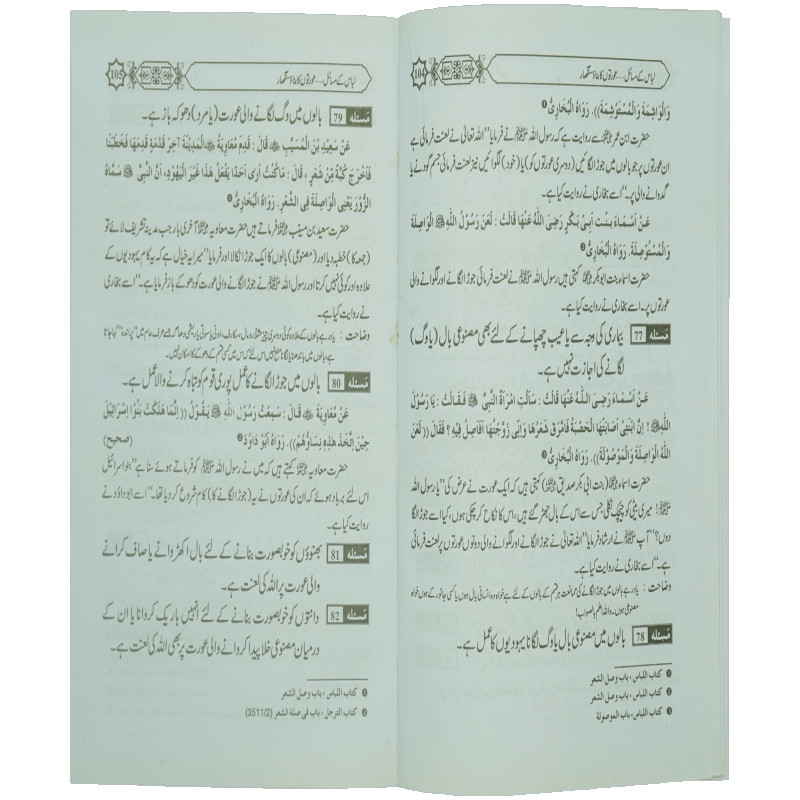 104 لباس کے مسائل... عورتوں کا بناؤ سنگھار
وَالْوَاشِمَةَ وَالْمُسْتَوْشِمَةَ)). رَوَاهُ الْبُخَارِيُّ ❶
حضرت ابن عمر ﷜ سے روایت ہے کہ رسول اللہ ﷺ نے فرمایا ”اللہ تعالیٰ نے لعنت فرمائی ہے
ان عورتوں پر جو بالوں میں جوڑ لگائیں (دوسری عورتوں کو) یا (خود) لگوائیں نیز لعنت فرمائی جسم گودنے یا
گدوانے والی پر۔“ اسے بخاری نے روایت کیا ہے۔
عَنْ أَسْمَاءَ بِنْتِ أَبِي بَكْرٍ رَضِيَ اللَّهُ عَنْهَا قَالَتْ : لَعَنَ رَسُوْلُ اللَّهِ ﷺ الْوَاصِلَةَ
وَالْمُسْتَوْصِلَةَ. رَوَاهُ الْبُخَارِيُّ ❷
حضرت اسماء بنت ابوبکر ﷞ کہتی ہیں رسول اللہ ﷺ نے لعنت فرمائی جوڑ لگانے اور لگوانے والی
عورتوں پر۔ اسے بخاری نے روایت کیا ہے۔
مسئلہ 77 بیماری کی وجہ سے یا عیب چھپانے کے لئے بھی مصنوعی بال (یا وگ)
لگانے کی اجازت نہیں ہے۔
عَنْ أَسْمَاءَ رَضِيَ اللَّهُ عَنْهَا قَالَتْ : سَأَلَتِ امْرَأَةٌ النَّبِيَّ ﷺ فَقَالَتْ : يَا رَسُوْلَ
اللَّهِ ﷺ ! إِنَّ ابْنَتِي أَصَابَتْهَا الْحَصْبَةُ فَامَّرَقَ شَعْرُهَا وَإِنِّي زَوَّجْتُهَا أَفَأَصِلُ فِيهِ ؟ فَقَالَ ((لَعَنَ
اللَّهُ الْوَاصِلَةَ وَالْمَوْصُوْلَةَ)). رَوَاهُ الْبُخَارِيُّ ❸
حضرت اسماء ﷞ (بنت ابی بکر صدیق ﷜) کہتی ہیں کہ ایک عورت نے عرض کی ”یا رسول اللہ
ﷺ! میری بیٹی کو چیچک نکلی جس سے اس کے بال جھڑ گئے ہیں، اس کا نکاح کر چکی ہوں، کیا اسے جوڑ
دوں؟“ آپ ﷺ نے ارشاد فرمایا ”اللہ تعالیٰ نے جوڑ لگانے اور لگوانے والی دونوں عورتوں پر لعنت فرمائی
ہے۔“ اسے بخاری نے روایت کیا ہے۔
وضاحت : یاد رہے بالوں میں جوڑ لگانے کی ممانعت ہر قسم کے بالوں کے لئے ہے خواہ وہ انسانی بال ہوں یا کسی جانور کے ہوں خواہ
مصنوعی ہوں۔ واللہ اعلم بالصواب!
مسئلہ 78 بالوں میں مصنوعی بال یا وگ لگانا یہودیوں کا عمل ہے۔
❶ کتاب اللباس ، باب وصل الشعر
❷ کتاب اللباس ، باب وصل الشعر
❸ کتاب اللباس، باب الموصولة
105 لباس کے مسائل... عورتوں کا بناؤ سنگھار
مسئلہ 79 بالوں میں وگ لگانے والی عورت (یا مرد) دھوکہ باز ہے۔
عَنْ سَعِيْدِ بْنِ الْمُسَيَّبِ ﷜ قَالَ : قَدِمَ مُعَاوِيَةُ ﷜ الْمَدِيْنَةَ آخِرَ قَدْمَةٍ قَدِمَهَا فَخَطَبَنَا
فَأَخْرَجَ كُبَّةً مِنْ شَعَرٍ ، قَالَ : مَا كُنْتُ أَرَى أَحَدًا يَفْعَلُ هَذَا غَيْرَ الْيَهُوْدِ، إِنَّ النَّبِيَّ ﷺ سَمَّاهُ
الزُّوْرَ يَعْنِي الْوَاصِلَةَ فِي الشَّعْرِ. رَوَاهُ الْبُخَارِيُّ ❶
حضرت سعید بن مسیب ﷜ فرماتے ہیں حضرت معاویہ ﷜ آخری بار جب مدینہ تشریف لائے تو
(جمعہ کا) خطبہ دیا اور (مصنوعی) بالوں کا ایک جوڑا نکالا اور فرمایا ”میرا یہ خیال ہے کہ یہ کام یہودیوں کے
علاوہ اور کوئی نہیں کرتا اور رسول اللہ ﷺ نے جوڑ لگانے والی عورت کو دھوکے باز فرمایا ہے۔“ اسے بخاری
نے روایت کیا ہے۔
وضاحت : یاد رہے بالوں کے علاوہ کوئی دوسری چیز مثلاً رومال، سکارف، اونی یا سوتی یا ریشمی دھاگہ جسے عرف عام میں ”پراندہ“ کہا جاتا
ہے، بالوں میں باندھنا یا لگانا منع نہیں اس لئے کہ اس میں کسی قسم کے دھوکے کا امکان نہیں۔
مسئلہ 80 بالوں میں جوڑ لگانے کا عمل پوری قوم کو تباہ کرنے والا عمل ہے۔
عَنْ مُعَاوِيَةَ ﷜ قَالَ : سَمِعْتُ رَسُوْلَ اللَّهِ ﷺ يَقُوْلُ ((إِنَّمَا هَلَكَتْ بَنُوْ إِسْرَائِيْلَ
حِيْنَ اتَّخَذَ هَذِهِ نِسَاؤُهُمْ)). رَوَاهُ أَبُوْ دَاوُدَ ❷ (صحیح)
حضرت معاویہ ﷜ کہتے ہیں کہ میں نے رسول اللہ ﷺ کو فرماتے ہوئے سنا ہے ”بنو اسرائیل
اس لئے برباد ہوئے کہ ان کی عورتوں نے یہ (جوڑ لگانے کا) کام شروع کر دیا تھا۔“ اسے ابو داؤد نے
روایت کیا ہے۔
مسئلہ 81 بھنوؤں کو خوبصورت بنانے کے لئے بال اکھڑوانے یا صاف کرانے
والی عورت پر اللہ کی لعنت ہے۔
مسئلہ 82 دانتوں کو خوبصورت بنانے کے لئے انہیں باریک کروانا یا ان کے
درمیان مصنوعی خلا پیدا کروانے والی عورت پر بھی اللہ کی لعنت ہے۔
❶ کتاب اللباس ، باب وصل الشعر
❷ کتاب الترجل ، باب فی صلة الشعر (3511/2)